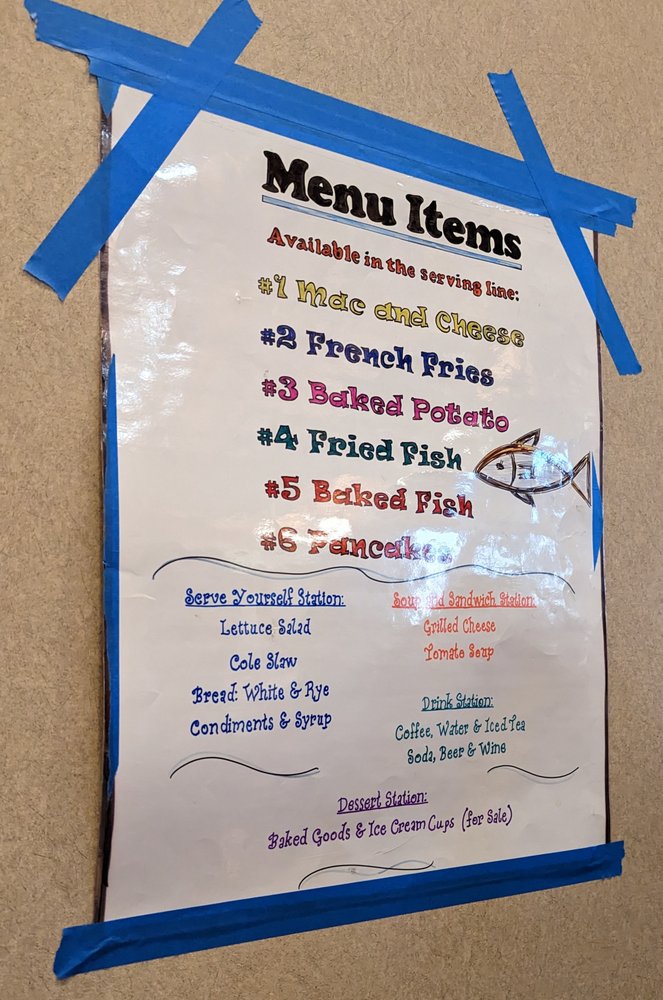 Menu Items
Available in the serving line:
#1 Mac and Cheese
#2 French Fries
#3 Baked Potato
#4 Fried Fish
#5 Baked Fish
#6 Pancakes
Serve Yourself Station:
Lettuce Salad
Cole Slaw
Bread: White & Rye
Condiments & Syrup
Soup and Sandwich Station:
Grilled Cheese
Tomato Soup
Drink Station:
Coffee, Water & Iced Tea
Soda, Beer & Wine
Dessert Station:
Baked Goods & Ice Cream Cups (for Sale)